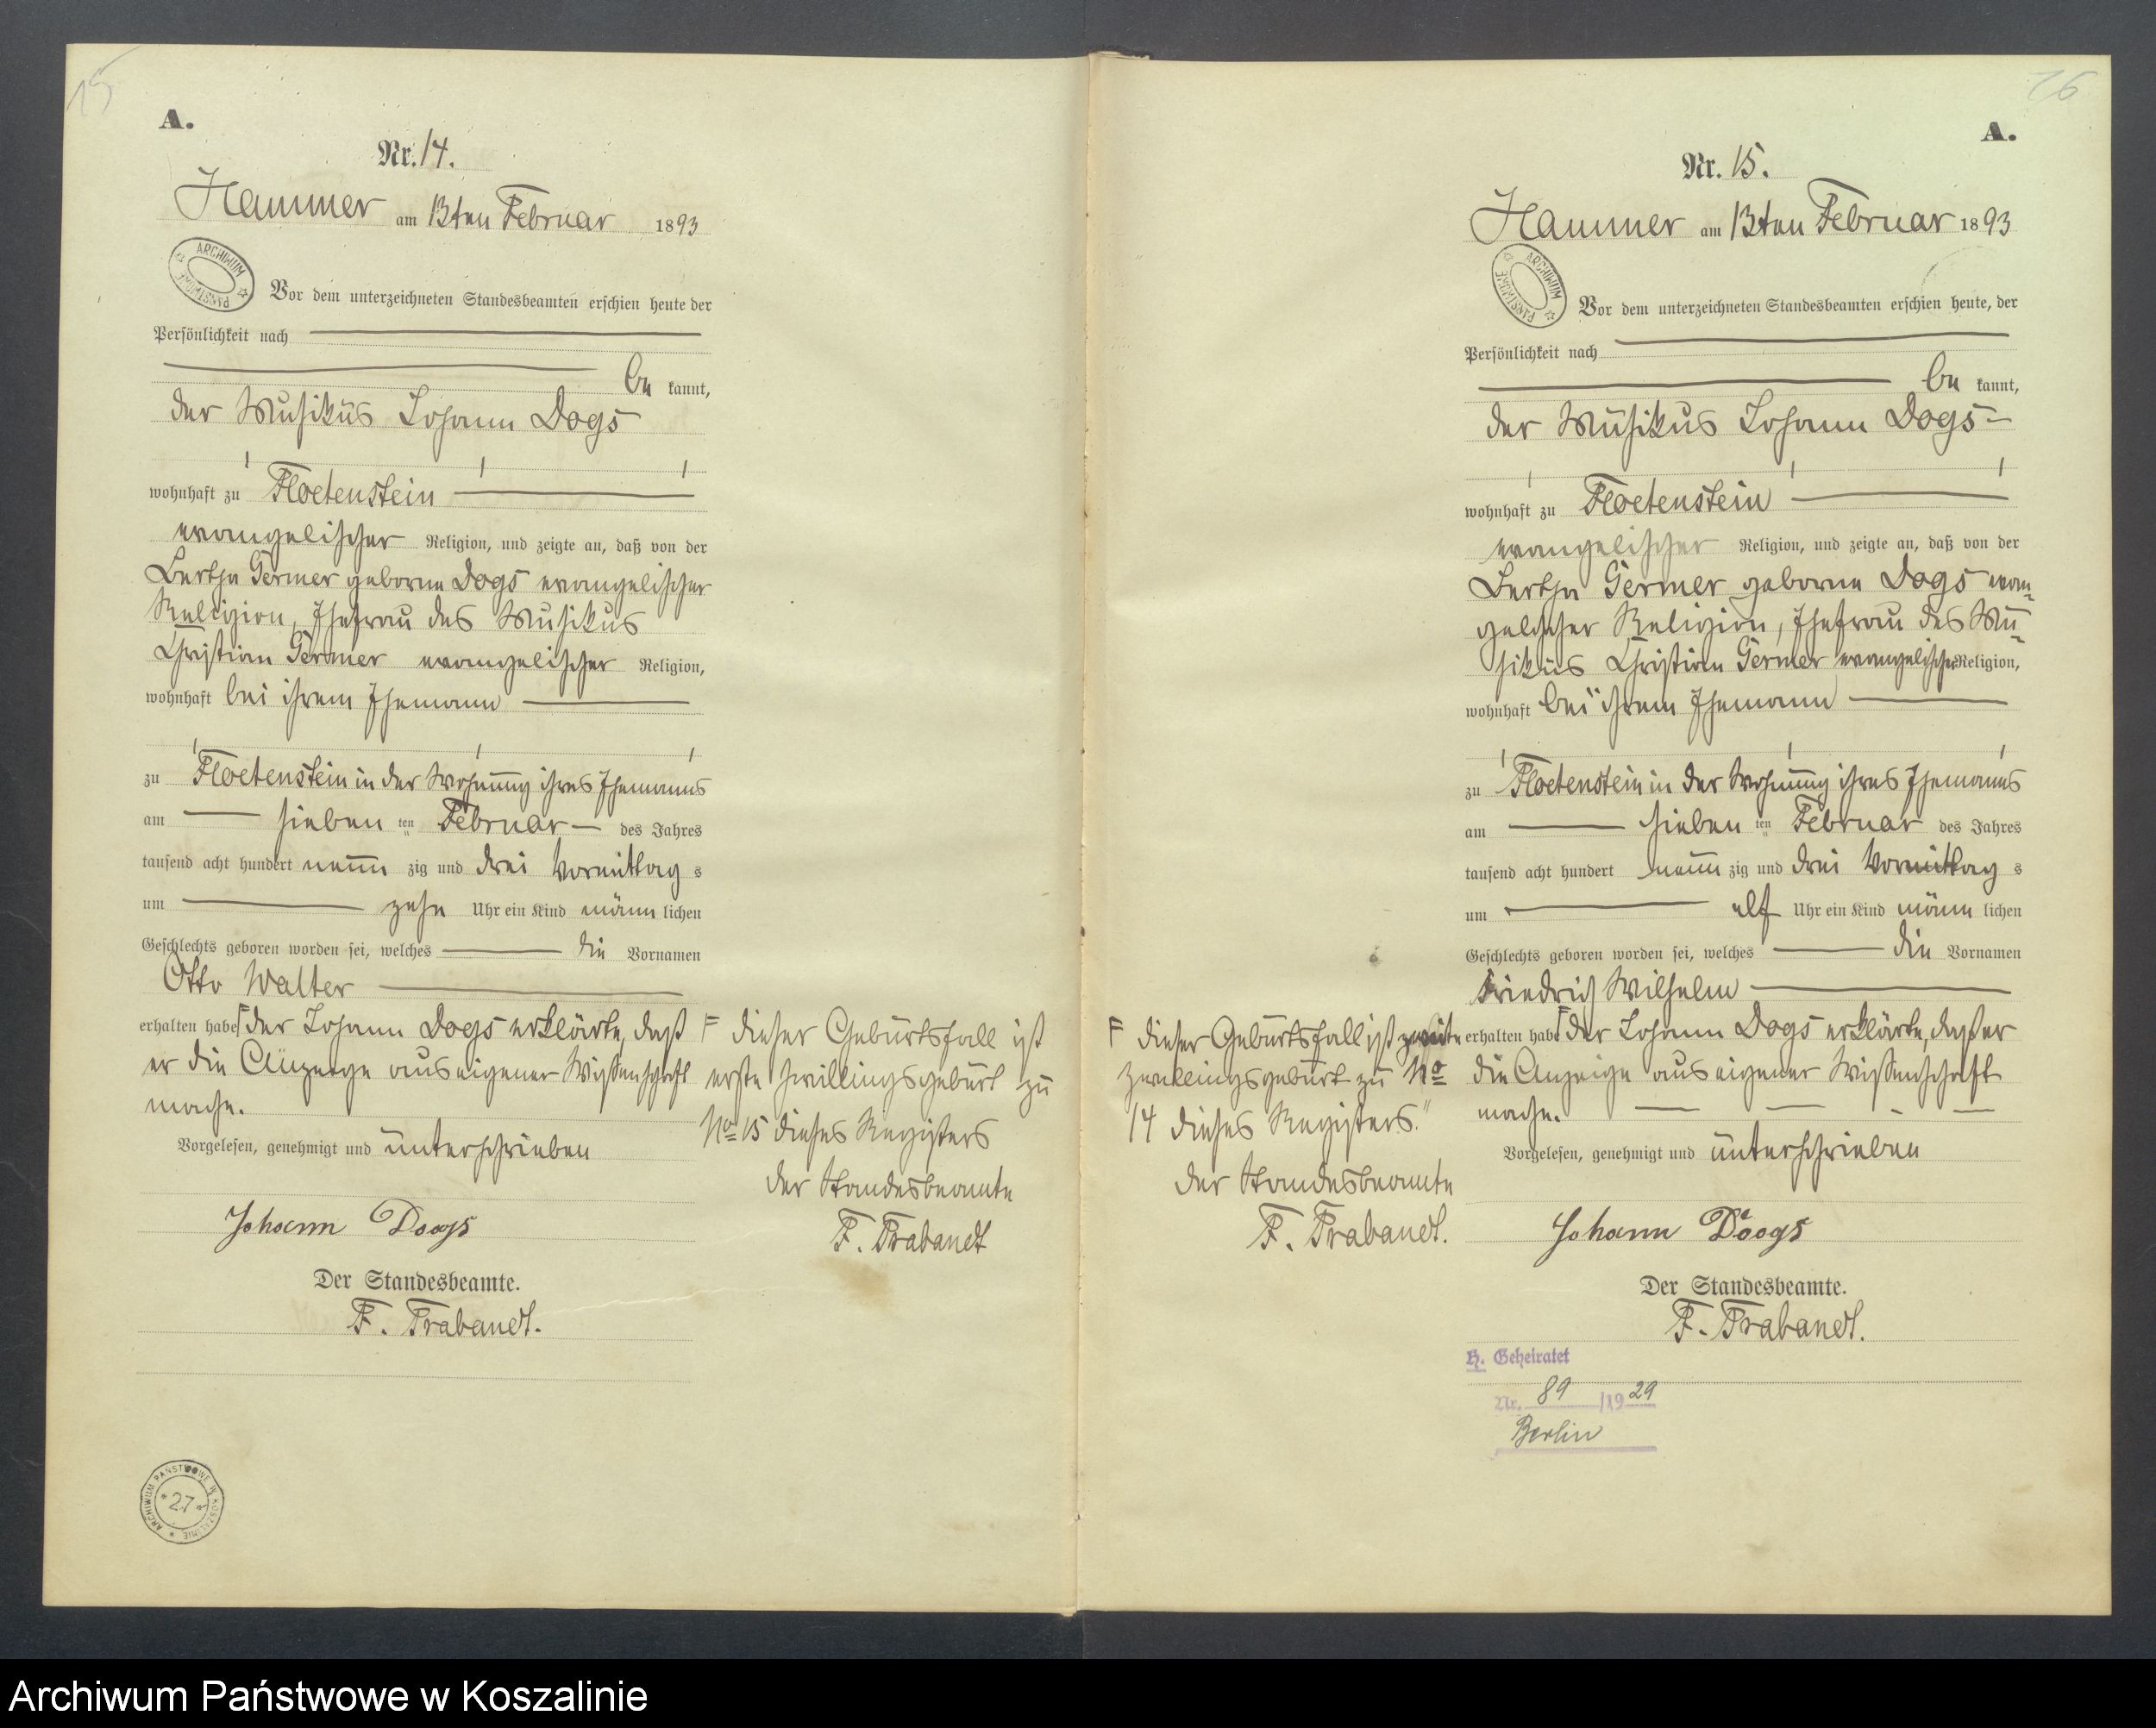 15
A.
Nr. 14.
Hammer am 13ten Februar 1893
ARCHIWUM PAŃSTWOWE
Vor dem unterzeichneten Standesbeamten erschien heute der
Persönlichkeit nach
be kannt,
der Musikus Johann Dogs
wohnhaft zu Floetenstein
evangelischer Religion, und zeigte an, daß von der
Bertha Germer geborne Dogs evangelischer
Religion, Ehefrau des Musikus
Christian Germer evangelischer Religion,
wohnhaft bei ihrem Ehemann
zu Floetenstein in der Wohnung ihres Ehemanns
am sieben ten Februar des Jahres
tausend acht hundert neun zig und drei Vormittag s
um zehn Uhr ein Kind männ lichen
Geschlechts geboren worden sei, welches die Vornamen
Otto Walter
erhalten habe F der Johann Dogs erklärte, daß
er die Anzeige aus eigener Wissenschaft
mache.
Vorgelesen, genehmigt und unterschrieben
Johann Doogs
Der Standesbeamte.
F. Trabandt.
F dieser Geburtsfall ist
erste Zwillingsgeburt zu
No 15 dieses Registers
der Standesbeamte
F. Trabandt
ARCHIWUM PAŃSTWOWE W KOSZALINIE
27
16
A.
Nr. 15.
Hammer am 13ten Februar 1893
ARCHIWUM PAŃSTWOWE
Vor dem unterzeichneten Standesbeamten erschien heute, der
Persönlichkeit nach
be kannt,
der Musikus Johann Dogs
wohnhaft zu Floetenstein
evangelischer Religion, und zeigte an, daß von der
Bertha Germer geborne Dogs evan-
gelischer Religion, Ehefrau des Mu-
sikus Christian Germer evangelischer Religion,
wohnhaft bei ihrem Ehemann
zu Floetenstein in der Wohnung ihres Ehemanns
am sieben ten Februar des Jahres
tausend acht hundert neun zig und drei Vormittag s
um elf Uhr ein Kind männ lichen
Geschlechts geboren worden sei, welches die Vornamen
Friedrich Wilhelm
erhalten habe F der Johann Dogs erklärte, daß er
die Anzeige aus eigener Wissenschaft
mache.
Vorgelesen, genehmigt und unterschrieben
Johann Doogs
Der Standesbeamte.
F. Trabandt.
F dieser Geburtsfall ist zweite
Zwillingsgeburt zu No
14 dieses Registers."
der Standesbeamte
F. Trabandt.
H. Geheiratet
Nr. 89 /1929
Berlin
Archiwum Państwowe w Koszalinie